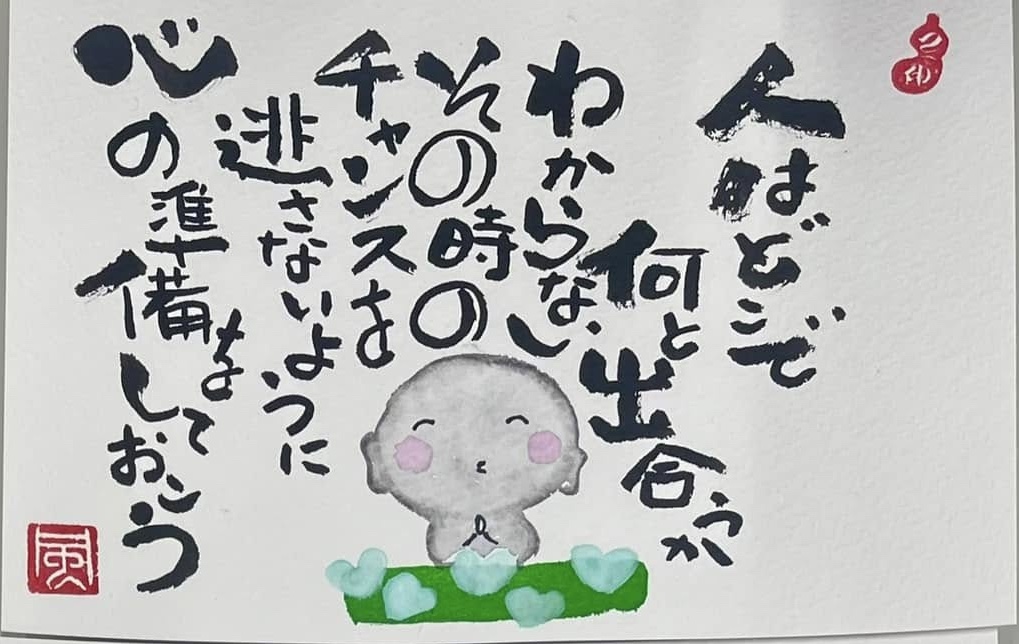 人はどこで
何と出合うか
わからない
その時の
チャンスを
逃さないように
心の準備を
しておこう
風